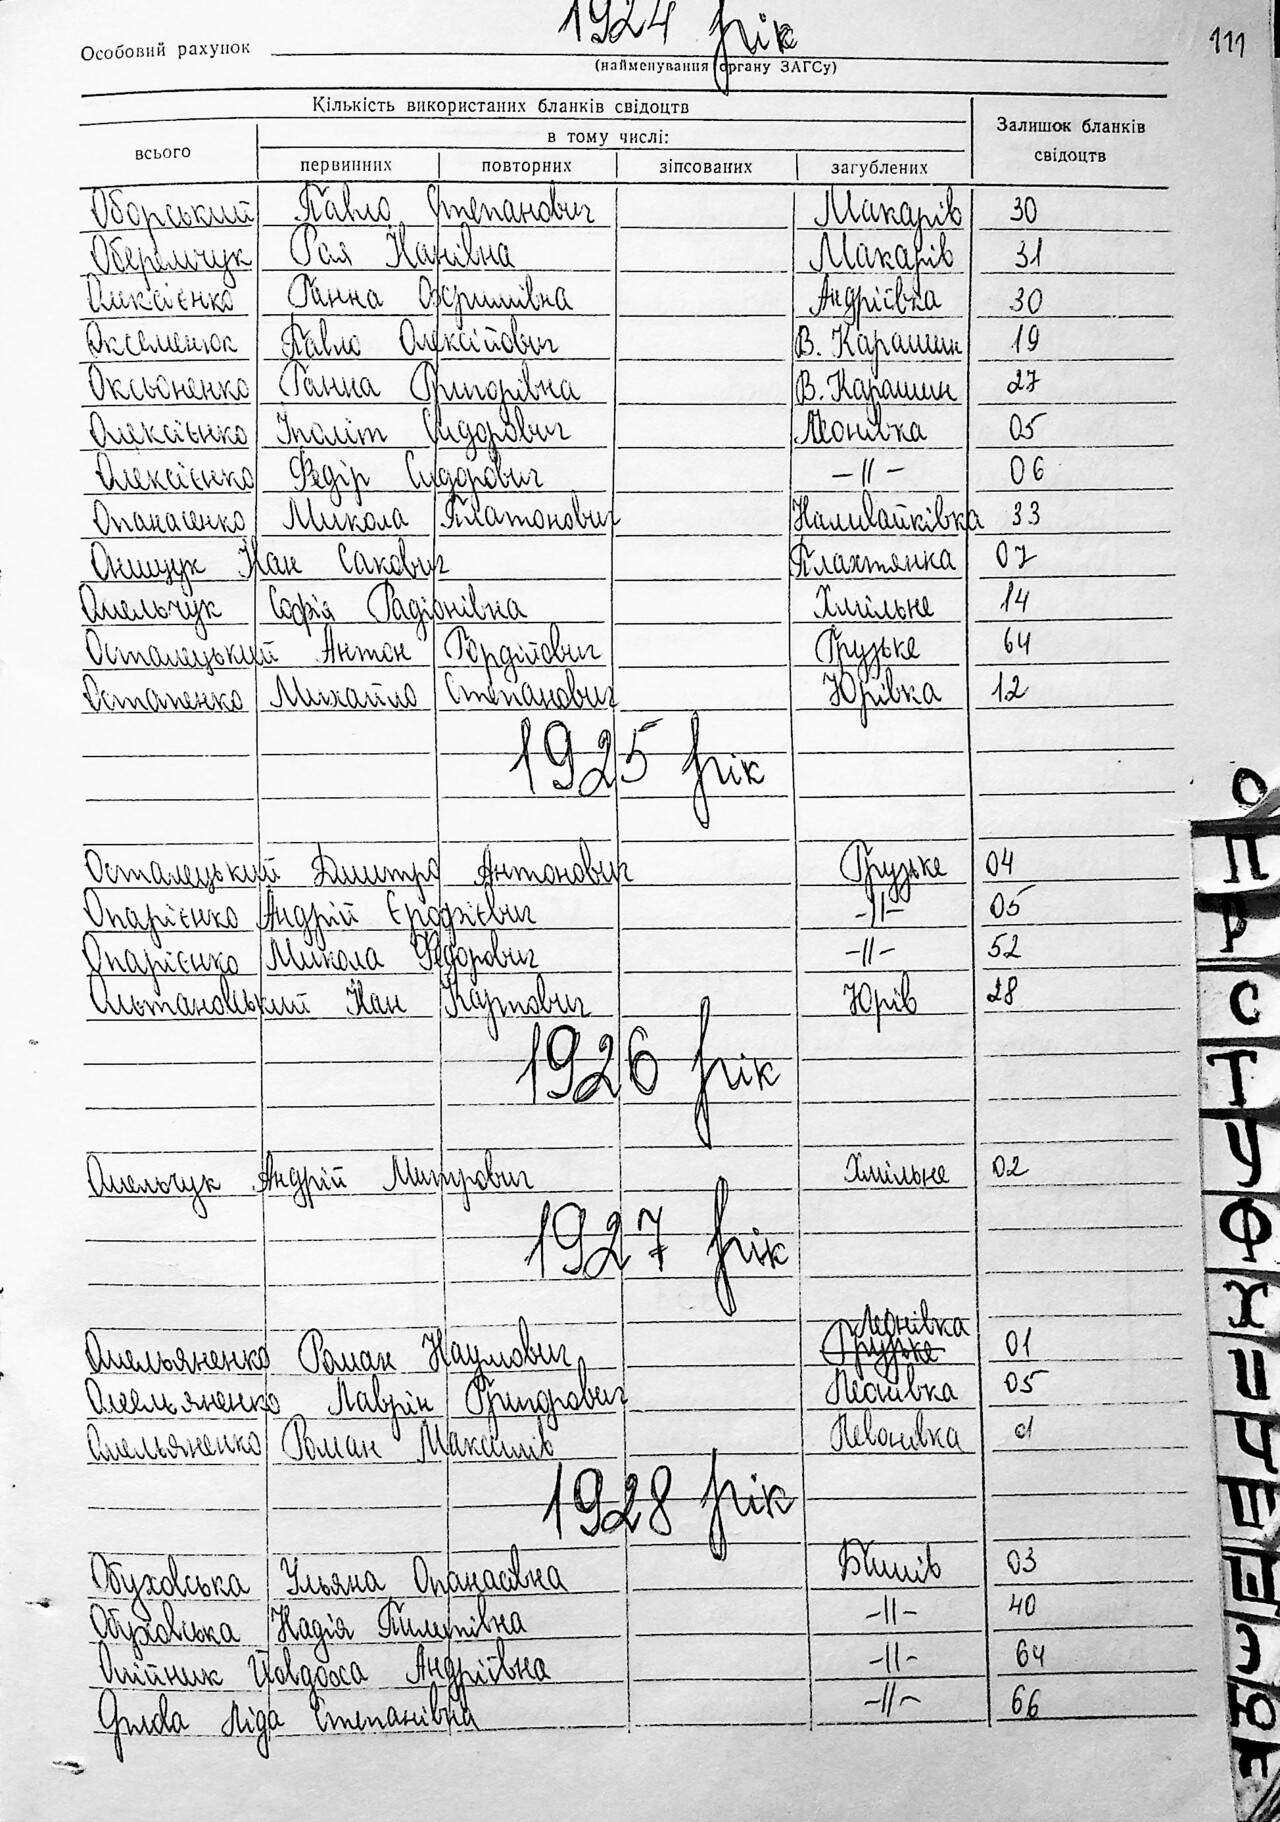 1924 рік
111
Особовий рахунок
(найменування органу ЗАГСу)
Кількість використаних бланків свідоцтв
Залишок бланків свідоцтв
всього
в тому числі:
первинних повторних зіпсованих загублених
Оборський Павло Степанович Макарів 30
Оберемчук Рая Іванівна Макарів 31
Олексієнко Ганна Охримівна Андріївка 30
Оксеменюк Павло Олексійович В. Карашин 19
Оксьоненко Ганна Григорівна В. Карашин 27
Олексієнко Іполіт Сидорович Леонівка 05
Олексієнко Федір Сидорович -||- 06
Опанаєнко Микола Платонович Наливайківка 33
Онищук Іван Сакович Плахтянка 07
Омельчук Софія Радіонівна Хмільне 14
Осталецький Антон Гордійович Грузьке 64
Остапенко Михайло Степанович Юрівка 12
1925 рік
Осталецький Дмитро Антонович Грузьке 04
Опарієнко Андрій Єрофієвич -||- 05
Опарієнко Микола Федорович -||- 52
Ольтановський Іван Карпович Юрів 28
1926 рік
Омельчук Андрій Митрович Хмільне 02
1927 рік
Леонівка
Омельяненко Роман Наумович Грузьке 01
Омельяненко Лаврін Григорович Леонівка 05
Омельяненко Роман Максимів Левонівка
1928 рік
Обуховська Уляна Опанасівна Бишів 03
Обуховська Надія Пилипівна -||- 40
Олійник Йовдоха Андріївна -||- 64
Орлова Ліда Степанівна -||- 66
О
П
Р
С
Т
У
Ф
Х
Ц
Ч
Ш
Щ
Э
Ю
Я